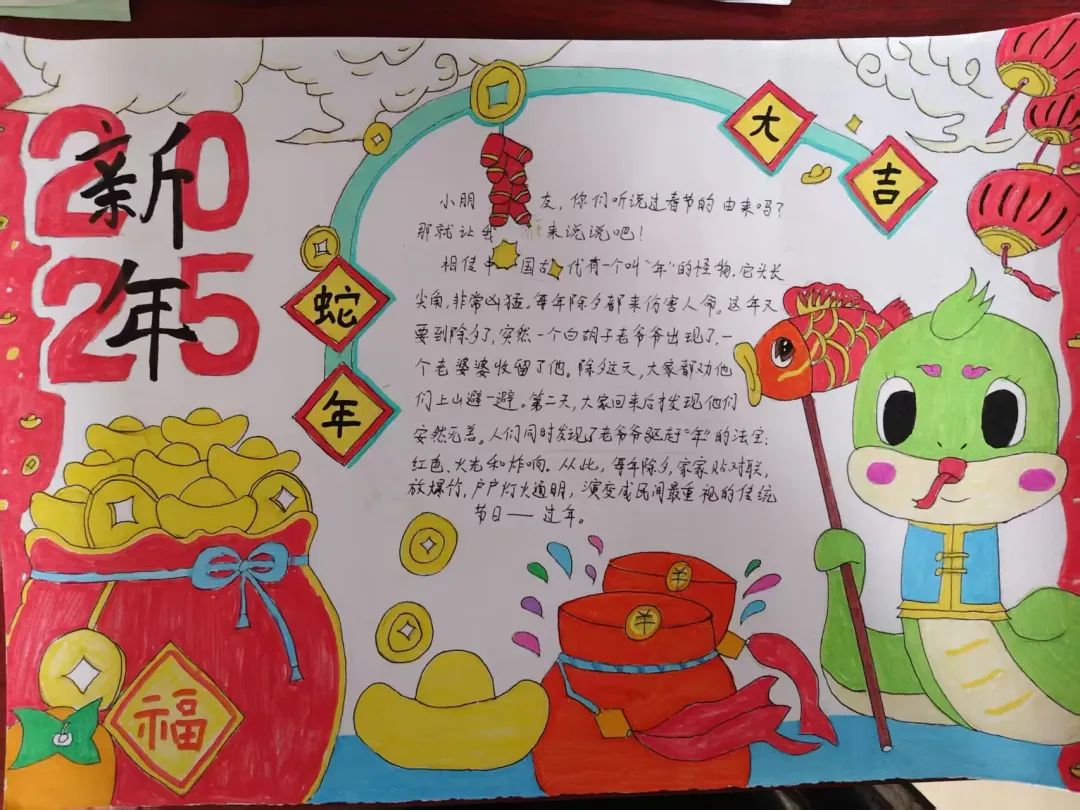 2025
新年
蛇年
大吉
小朋友，你们听说过春节的由来吗？
那就让我来说说吧！
相传中国古代有一个叫“年”的怪物，它头长
尖角，非常凶猛。每年除夕都来伤害人命。这年又
要到除夕了，突然一个白胡子老爷爷出现了，一
个老婆婆收留了他。除夕这天，大家都劝他
们上山避一避。第二天，大家回来后才发现他们
安然无恙。人们同时发现了老爷爷驱赶“年”的法宝：
红色、火光和炸响。从此，每年除夕，家家贴对联，
放爆竹，户户灯火通明，演变成民间最重视的传统
节日——过年。
福
羊
羊